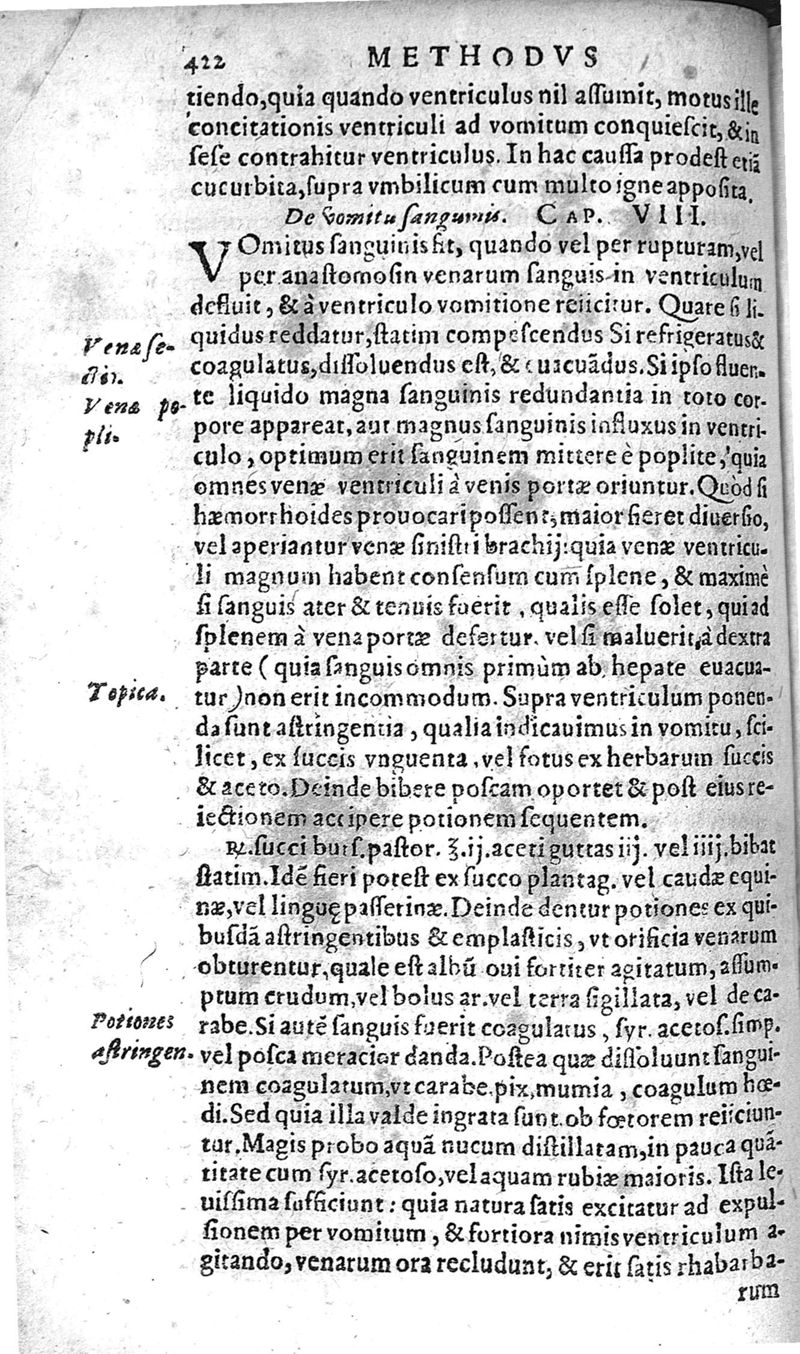 422 METHODVS
tiendo, quia quando ventriculus nil aſſumit, motus ille
concitationis ventriculi ad vomitum conquieſcit, & in
ſeſe contrahitur ventriculus. In hac cauſſa prodeſt etiã
cucurbita, ſupra vmbilicum cum multo igne appoſita.
De vomitu ſanguinis. CAP. VIII.
VOmitus ſanguinis fit, quando vel per rupturam, vel
per anaſtomoſin venarum ſanguis in ventriculum
defluit, & à ventriculo vomitione reiicitur. Quare ſi li-
quidus reddatur, ſtatim compeſcendus Si refrigeratus &
coagulatus, diſſoluendus eſt, & euacuãdus. Si ipſo fluen-
te liquido magna ſanguinis redundantia in toto cor-
pore appareat, aut magnus ſanguinis influxus in ventri-
culo, optimum erit ſanguinem mittere è poplite, quia
omnes venæ ventriculi à venis portæ oriuntur. Quòd ſi
hæmorrhoides prouocari poſſent, maior fieret diuerſio,
vel aperiantur venæ ſiniſtri brachij: quia venæ ventricu-
li magnum habent conſenſum cum ſplene, & maximè
ſi ſanguis ater & tenuis fuerit, qualis eſſe ſolet, qui ad
ſplenem à vena portæ defertur. vel ſi maluerit, à dextra
parte (quia ſanguis omnis primùm ab hepate euacua-
tur) non erit incommodum. Supra ventriculum ponen-
da ſunt aſtringentia, qualia indicauimus in vomitu, ſci-
licet, ex ſuccis vnguenta, vel fotus ex herbarum ſuccis
& aceto. Deinde bibere poſcam oportet & poſt eius re-
iectionem accipere potionem ſequentem.
℞. ſucci burſ. paſtor. ℥.ij. aceti guttas iij. vel iiij. bibat
ſtatim. Idẽ fieri poteſt ex ſucco plantag. vel caudæ equi-
næ, vel linguę paſſerinæ. Deinde dentur potiones ex qui-
buſdã aſtringentibus & emplaſticis, vt orificia venarum
obturentur, quale eſt albũ oui fortiter agitatum, aſſum-
ptum crudum, vel bolus ar. vel terra ſigillata, vel de ca-
rabe. Si autẽ ſanguis fuerit coagulatus, ſyr. acetoſ. ſimp.
vel poſca meracior danda. Poſtea quæ diſſoluunt ſangui-
nem coagulatum, vt carabe, pix, mumia, coagulum hœ-
di. Sed quia illa valde ingrata ſunt. ob fœtorem reiiciun-
tur. Magis probo aquã nucum diſtillatam, in pauca quã-
titate cum ſyr. acetoſo, vel aquam rubiæ maioris. Iſta le-
uiſſima ſufficiunt: quia natura ſatis excitatur ad expul-
ſionem per vomitum, & fortiora nimis ventriculum a-
gitando, venarum ora recludunt, & erit ſatis rhabarba-
rum
Venæ ſe-
ctio.
Venæ po-
pli.
Topica.
Potiones
aſtringen.